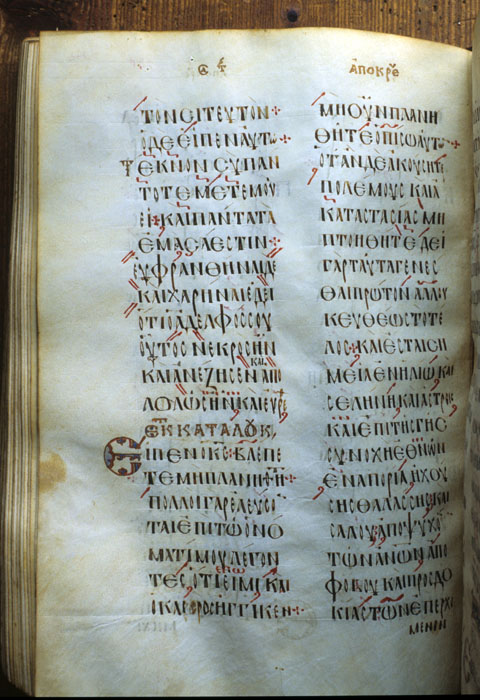 ΑΠΟΚΡΕ
ΤΟΝϹΙΤΕΥΤΟΝ
ΟΔΕΕΙΠΕΝΑΥΤω
ΤΕΚΝΟΝϹΥΠΑΝ
ΤΟΤΕΜΕΤΕΜΟΥ
ΕΙ·ΚΑΙΠΑΝΤΑΤΑ
ΕΜΑϹΑΕϹΤΙΝ
ΕΥΦΡΑΝΘΗΝΑΙΔΕ
ΚΑΙΧΑΡΗΝΑΙΕΔΕΙ
ΟΤΙΟΑΔΕΛΦΟϹϹΟΥ
ΟΥΤΟϹΝΕΚΡΟϹΗΝ
ΚΑΙ
ΚΑΙΑΝΕΖΗϹΕΝΑΠΟ
ΛΟΛΩϹΗΝΚΑΙΕΥΡΕ
ΕΚΚΑΤΑΛΟΥΚ
ΕΙΠΕΝΟΚϹΒΛΕΠΕ
ΤΕΜΗΠΛΑΝΗΘΗ
ΠΟΛΛΟΙΓΑΡΕΛΕΥϹΟ
ΤΑΙΕΠΙΤΩΟΝΟ
ΜΑΤΙΜΟΥΛΕΓΟΝ
ΕΓω
ΤΕϹΟΤΙΕΙΜΙΚΑΙ
ΟΚΑΙΡΟϹΗΓΓΙΚΕΝ
ΜΗΟΥΝΠΛΑΝΗ
ΘΗΤΕΟΠΙϹΩΑΥΤω
ΟΤΑΝΔΕΑΚΟΥϹΗΤΕ
ΠΟΛΕΜΟΥϹΚΑΙΑ
ΚΑΤΑϹΤΑϹΙΑϹΜΗ
ΠΤΟΗΘΗΤΕΔΕΙ
ΓΑΡΤΑΥΤΑΓΕΝΕϹ
ΘΑΙΠΡΩΤΟΝΑΛΛΟΥ
ΚΕΥΘΕΩϹΤΟΤΕ
ΛΟϹ·ΚΑΙΕϹΤΑΙϹΗ
ΜΕΙΑΕΝΗΛΙΩΚΑΙ
ϹΕΛΗΝΗΚΑΙΑϹΤΡΟΙϹ
ΚΑΙΕΠΙΤΗϹΓΗϹ
ϹΥΝΟΧΗΕΘΝΩΝ
ΕΝΑΠΟΡΙΑΗΧΟΥ
ϹΗϹΘΑΛΑϹϹΗϹΚΑΙ
ϹΑΛΟΥΑΠΟΨΥΧΟ
ΤΩΝΑΝΩΝΑΠΟ
ΦΟΒΟΥΚΑΙΠΡΟϹΔΟ
ΚΙΑϹΤΩΝΕΠΕΡΧΟ
ΜΕΝΩΝ